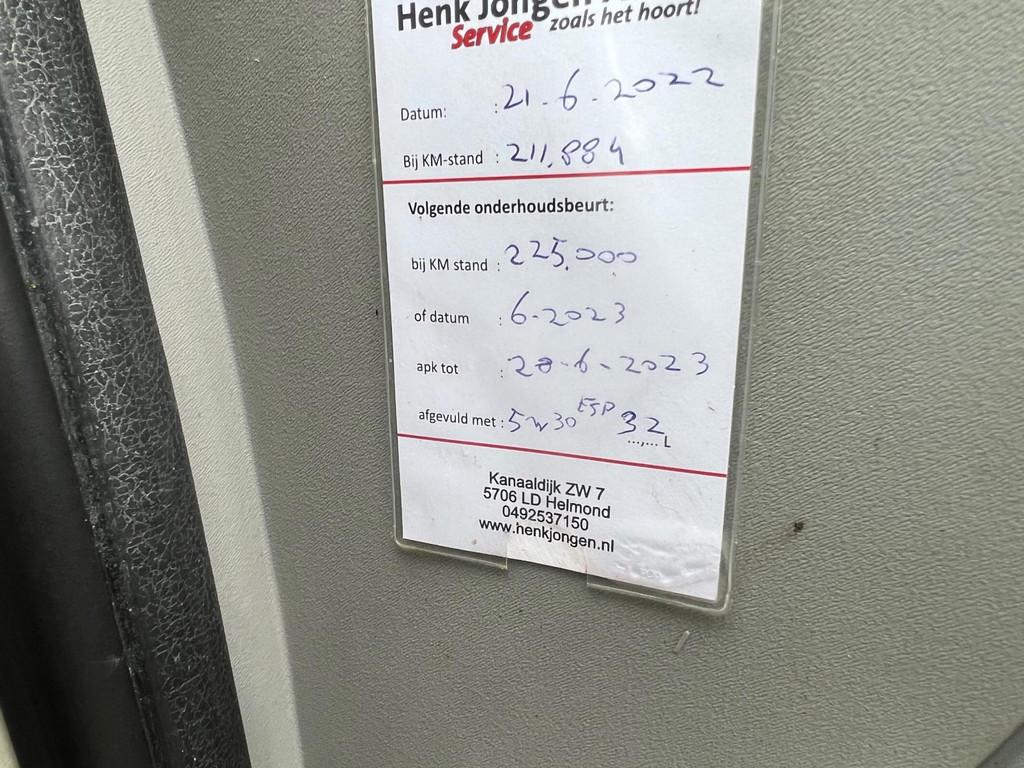 Henk Jongen
Service zoals het hoort!
Datum: : 21-6-2022
Bij KM-stand : 211.884
Volgende onderhoudsbeurt:
bij KM stand : 225.000
of datum : 6-2023
apk tot : 28-6-2023
afgevuld met : 5w30 ESP 32 ...,... L
Kanaaldijk ZW 7
5706 LD Helmond
0492537150
www.henkjongen.nl